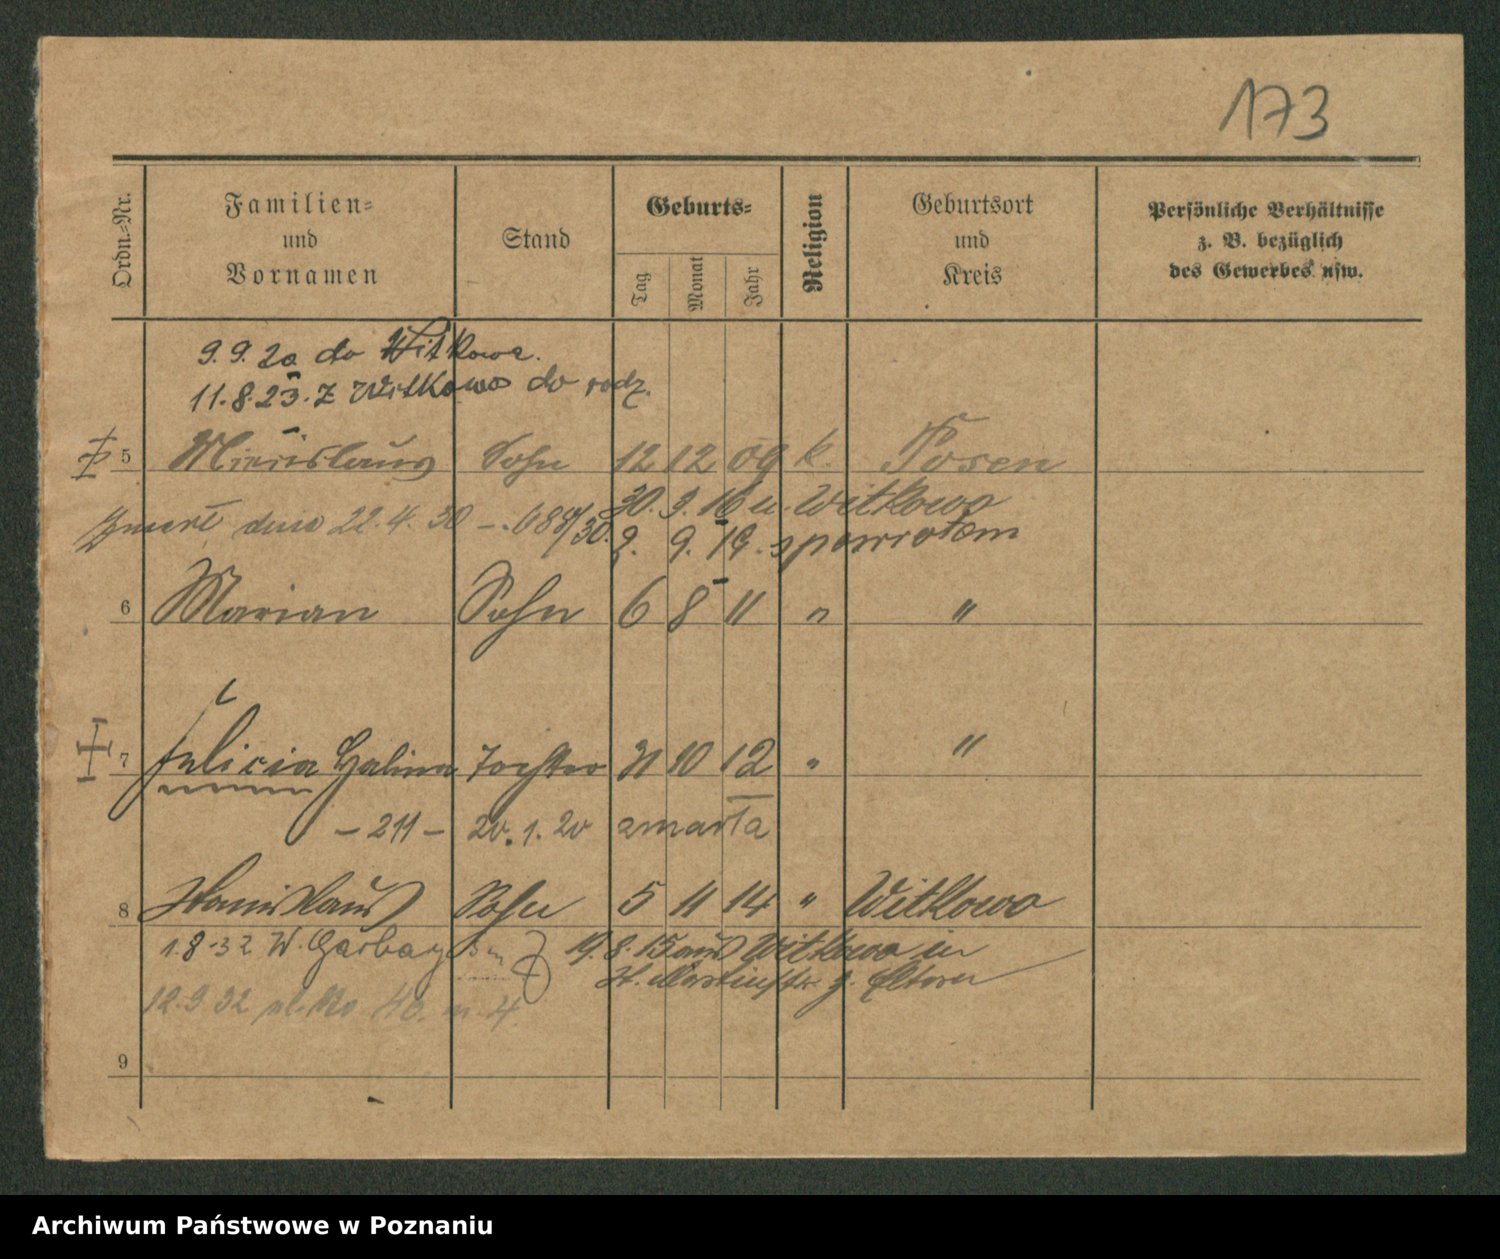 173
Ordn.-Nr.
Familien-
und
Vornamen
Stand
Geburts-
Tag
Monat
Jahr
Religion
Geburtsort
und
Kreis
Persönliche Verhältnisse
z. B. bezüglich
des Gewerbes usw.
9.9.20 do Witkowa.
11.8.23. z Witkowo do rodz.
5 Miecislaus Sohn 12 12 09 k. Posen
30. 9. 16 u. Witkowo
Zmarł dnia 22.4.30 - 688/30.
9. 9. 19. spowrotem
6 Marian Sohn 6 8 11 " "
7 Felicia Halina Tochter 21 10 12 " "
- 211 - 20.1.20 zmarła
8 Stanislaus Sohn 5 11 14 " Witkowo
1.8.32 W. Garbary
19.8.15 aus Witkowo in
St. Martinstr. z. Eltern
12.9.32 m. 4.
9
Archiwum Państwowe w Poznaniu